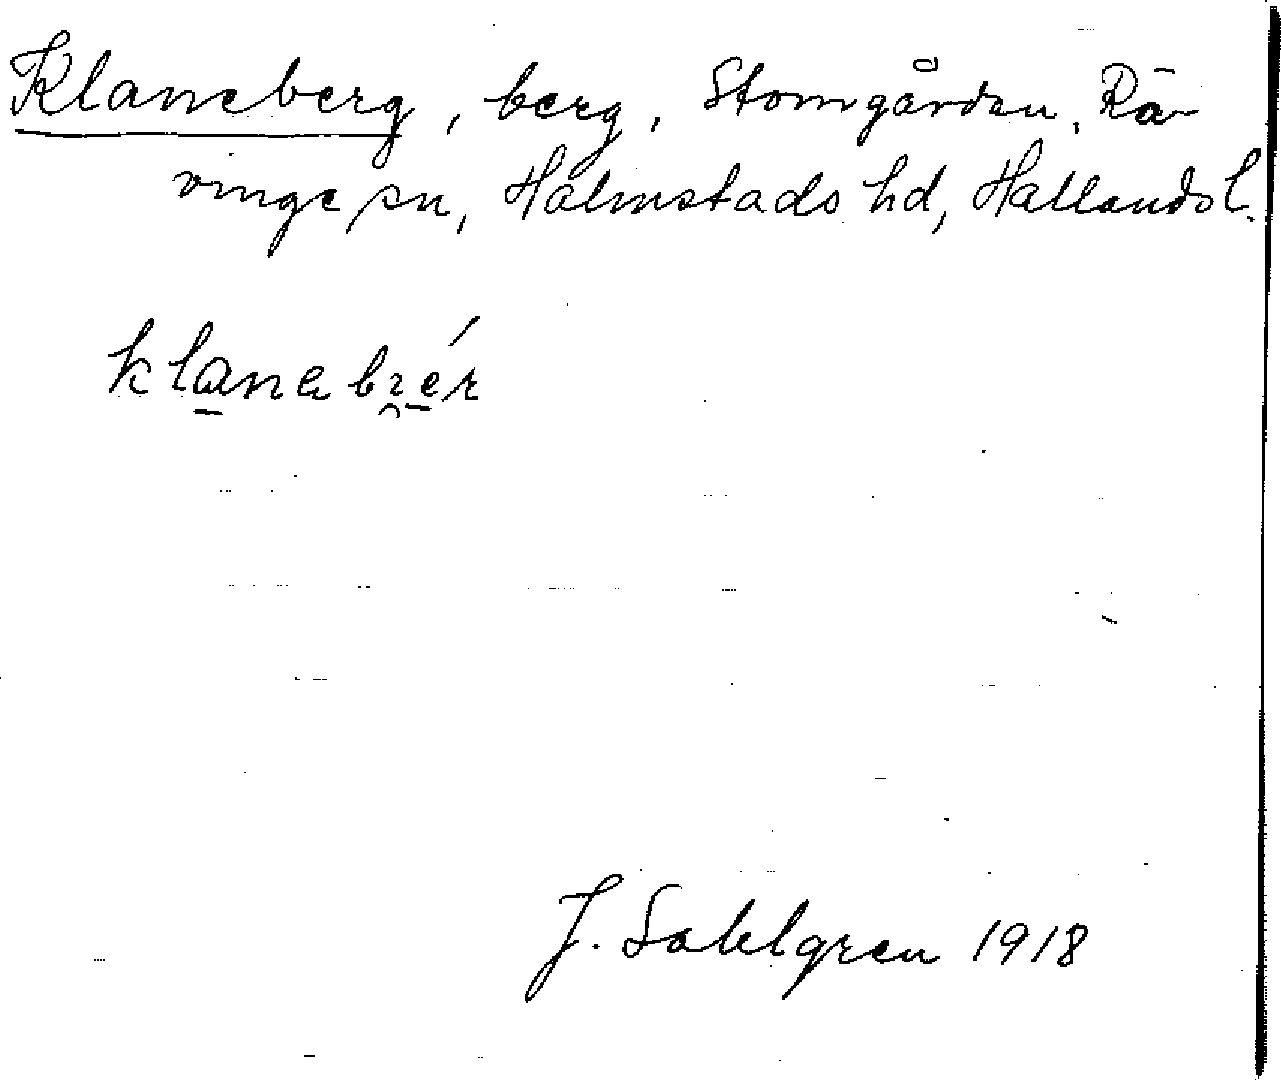 Klaneberg, berg, Stomgården, Rä-
vinge sn, Halmstads hd, Hallands l.
klanabrér
J. Sahlgren 1918